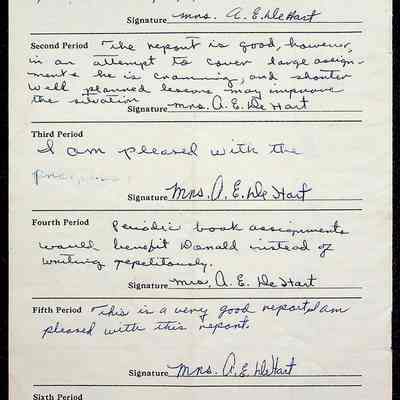 Signature Mrs. A. E. De Hart
Second Period The report is good, however,
in an attempt to cover large assign-
ments he is cramming, and shorter
well planned lessons may improve
the situation
Signature Mrs. A. E. De Hart
Third Period
I am pleased with the
Signature Mrs. A. E. De Hart
Fourth Period Periodic book assignments
would benefit Donald instead of
writing repetitously.
Signature Mrs. A. E. De Hart
Fifth Period This is a very good report, I am
pleased with this report.
Signature Mrs. A. E. De Hart
Sixth Period